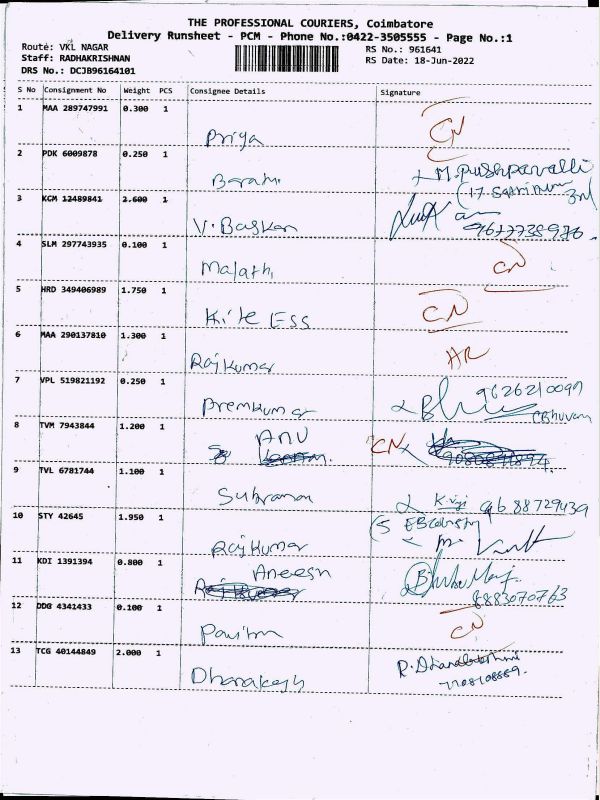 THE PROFESSIONAL COURIERS, Coimbatore
Delivery Runsheet - PCM - Phone No.:0422-3505555 - Page No.:1
Route: VKL NAGAR
RS No.: 961641
Staff: RADHAKRISHNAN
RS Date: 18-Jun-2022
DRS No.: DCJB96164101
S No Consignment No Weight PCS Consignee Details Signature
1 MAA 289747991 0.300 1
Priya CN
2 PDK 6009878 0.250 1
M. Pushpavalli
3 KGM 12489841 2.600 1
V. Baskar
4 SLM 297743935 0.100 1
Malathi CN
5 HRD 349406989 1.750 1
Kite ESS CN
6 MAA 290137810 1.300 1
Rajkumar AR
7 VPL 519821192 0.250 1
Premkumar
8 TVM 7943844 1.200 1
ANU CN
9 TVL 6781744 1.100 1
10 STY 42645 1.950 1
Rajkumar
11 KDI 1391394 0.800 1
Aneesh
8883070763
12 DDG 4341433 0.100 1
CN
13 TCG 40144849 2.000 1